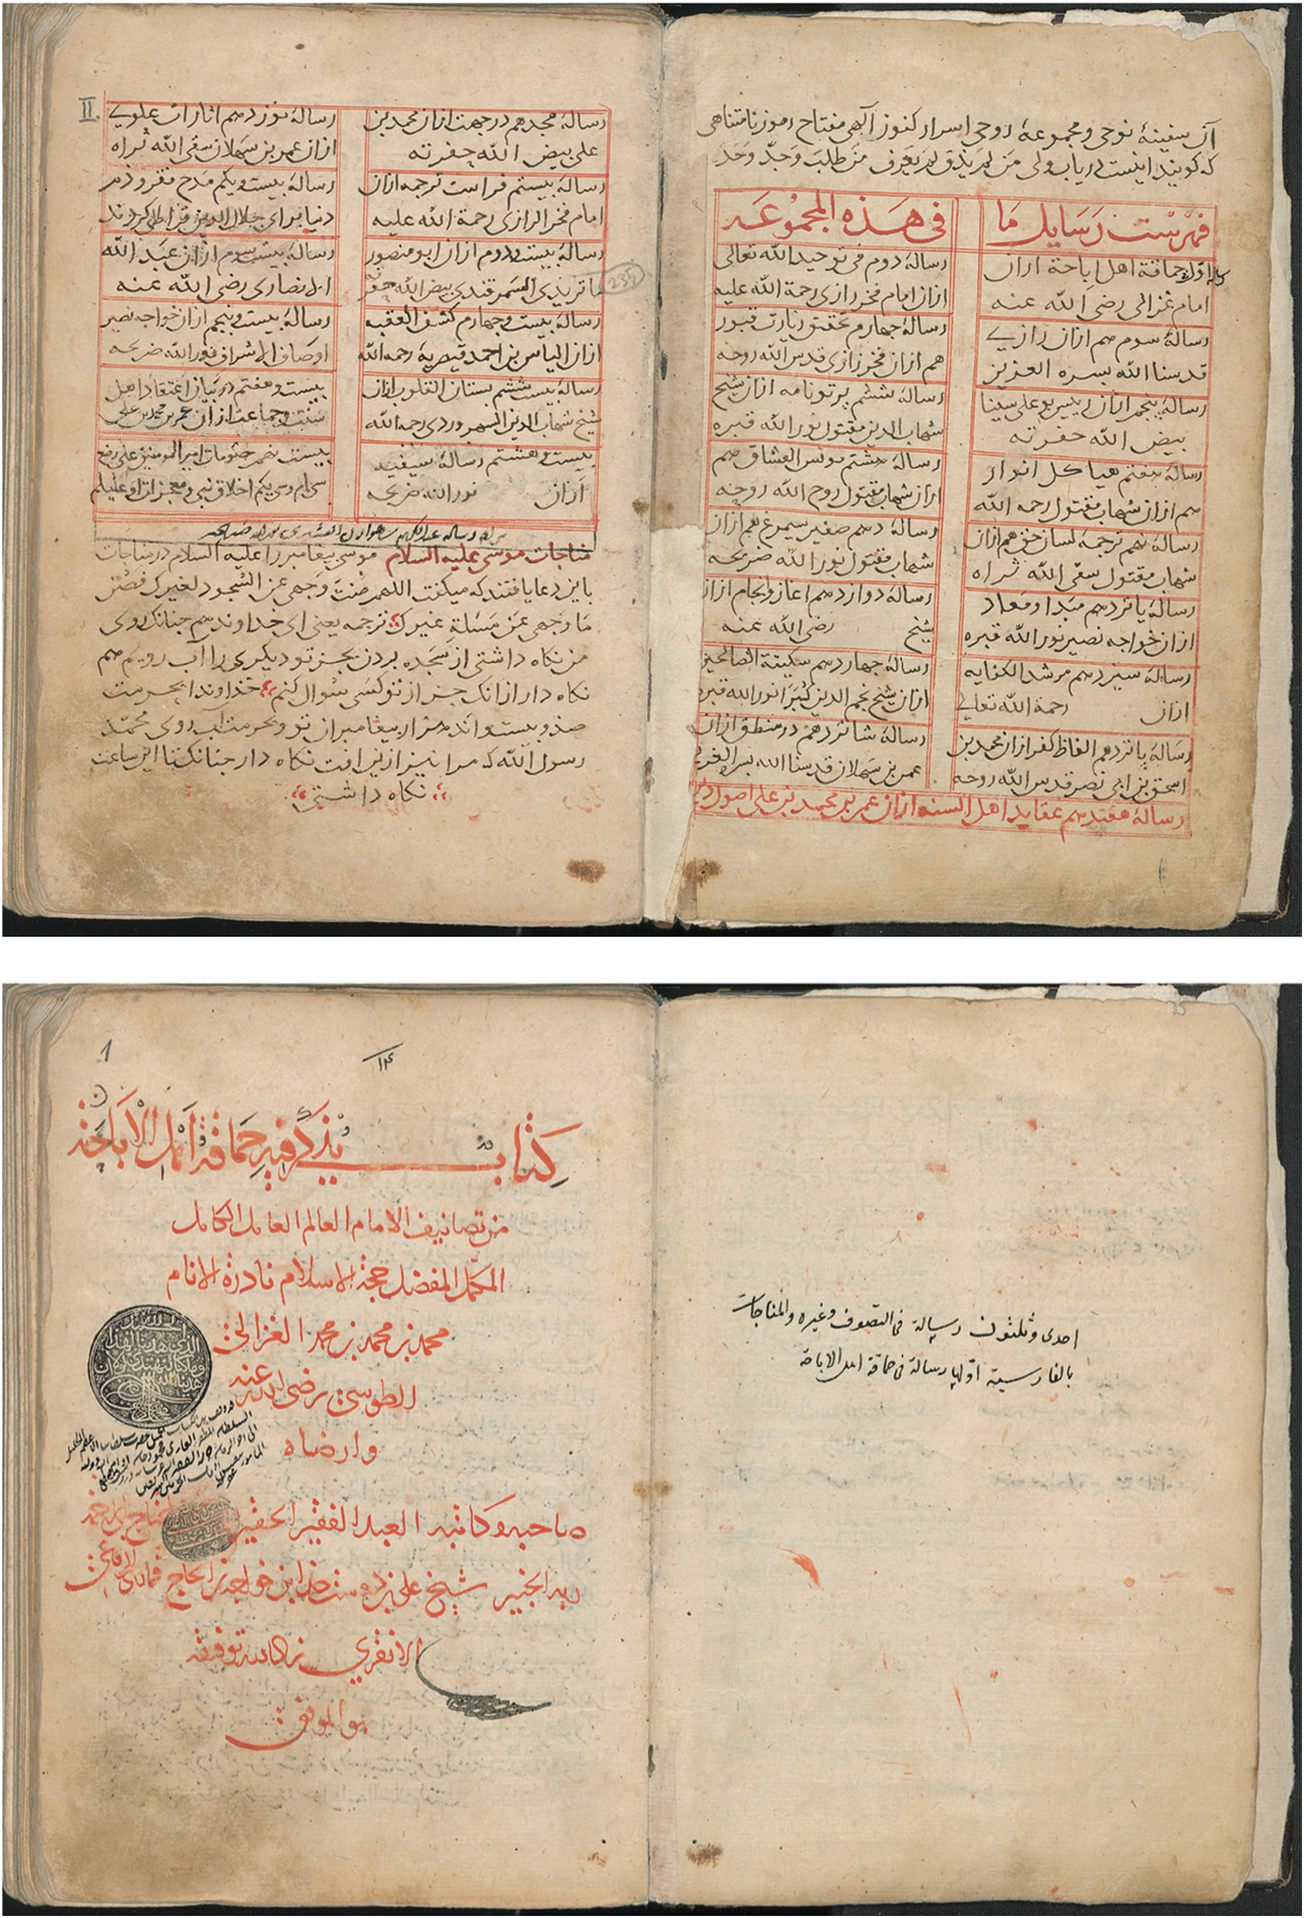 آن سفینهٔ نوحی و مجموعهٔ روحی اسرار کنوز آلهی مفتاح رموز نامتناهی
که کویند اینست دریاب ولی مَن لم یذق لم یعرف مَن طلبَ وَجدّ وَجَد
فهْرسْت رَسَایل مَا
فی هَذه المجمُوعَه
اوّل حماقة اهل اباحة ازان
امام غزالی رضی الله عنه
رسالهٔ دوم فی توحید الله تعالی
ازان امام فخر رازی رحمة الله علیه
رسالهٔ سوم هم ازان رازی
قدسنا الله بسره العزیز
رسالهٔ چهارم تحقیق زیارت قبور
هم ازان فخر رازی قدس الله روحه
رسالهٔ پنجم ازان رییس بو علی سینا
بیض الله حفرته
رسالهٔ ششم پرتونامه ازان شیخ
شهاب الدین مقتول نور الله قبره
رسالهٔ هفتم هیاکل انوار
هم ازان شهاب مقتول رحمه الله
رسالهٔ هشتم مونس العشاق هم
ازان شهاب مقتول روح الله روحه
رسالهٔ نهم ترجمهٔ لسان حق هم ازان
شهاب مقتول سقی الله ثراه
رسالهٔ دهم صفیر سیمرغ هم ازان
شهاب مقتول نور الله ضریحه
رسالهٔ یازدهم مبدا و معاد
ازان خواجه نصیر نور الله قبره
رسالهٔ دوازدهم اغاز و انجام ازان
شیخ رضی الله عنه
رسالهٔ سیزدهم مرشد الکفایه
ازان رحمة الله تعالی
رسالهٔ چهاردهم سکینة الصالحین
ازان شیخ نجم الدین کبرا نور الله قبره
رسالهٔ پانزدهم الفاظ کفر ازان محمد بن
اسحق بن ابی نصر قدس الله روحه
رسالهٔ شانزدهم در منطق ازان
عمر بن سهلان قدسنا الله بسر العزیز
رسالهٔ هفتدهم عقاید اهل السنه ازان عمر بن محمد بن علی اصول دین
II.
رسالهٔ هجدهم در جهت ازان محمد بن
علی بیض الله حفرته
رسالهٔ نوزدهم اثارات علوی
ازان عمر بن سهلان سقی الله ثراه
رسالهٔ بیستم فراست ترجمه ازان
امام فخر الرازی رحمة الله علیه
رسالهٔ بیست و یکم مدح فقر و ذم
دنیا برای جلال الدین
رسالهٔ بیست و دوم ازان ابو منصور
ماتریدی السمرقندی بیض الله حفرته
235
رسالهٔ بیست سوم ازان عبد الله
الانصاری رضی الله عنه
رسالهٔ بیست و چهارم کشف العقبه
ازان الیاس بن احمد قیصریه رحمه الله
رسالهٔ بیست و پنجم ازان خواجه نصیر
اوصاف الاشراف نور الله ضریحه
رسالهٔ بیست ششم بستان القلوب ازان
شیخ شهاب الدین السهروردی رحمه الله
بیست و هفتم در بیان اعتقاد اهل
سنت و جماعت ازان عمر بن محمد بن علی
بیست و هشتم رسالهٔ
ازان نور الله ضریحه
بیست نهم امیر المومنین علی رضع
سی ام و سی یکم اخلاق نبی و معجزات او علیه السلام
مناجات موسی علیه السلام موسی پیغامبر را علیه السلام در مناجات
باین دعا یافتند که میکفت اللهم صنت وجهی عن السّجود لغیرک فصُن
مَا وجهی عَن مَسئلةِ غیرک ترجمه یعنی ای خداوند هم چنانک روی
من نکاه داشتی از سجده بردن بجز تو دیکری را آب رویم هم
نکاه دار ازانک جز از تو کسی سُوال کنم خداوندا بحرمت
صد و بیست و اند هزار پیغامبران تو و بحرمت آب روی محمّد
رسول الله که مرا نیز ازین افت نکاه دار چنانک تا این ساعت
نکاه داشتی
احدی وثلثون رسالة فی التصوف وغیره والمناجات
بالفارسیة اولها رسالة فی حماقة اهل الاباحة
1
١٢٤
کتاب یُذکر فیه حماقة اهل الاباحة
من تصانیف الامام العالم العامل الکامل
المکمل المفضل حجة الاسلام نادرة الانام
محمد بن محمد بن محمد الغزالی
الطوسی رضی الله عنه
وارضاه
صاحبه وکاتبه العبد الفقیر الحقیر المحتاج الی رحمة
ربه الخبیر شیخ علی بن دوست خدا ابن خواجه بن الحاج قماری الرفاعی
الانقری
هو الموفق